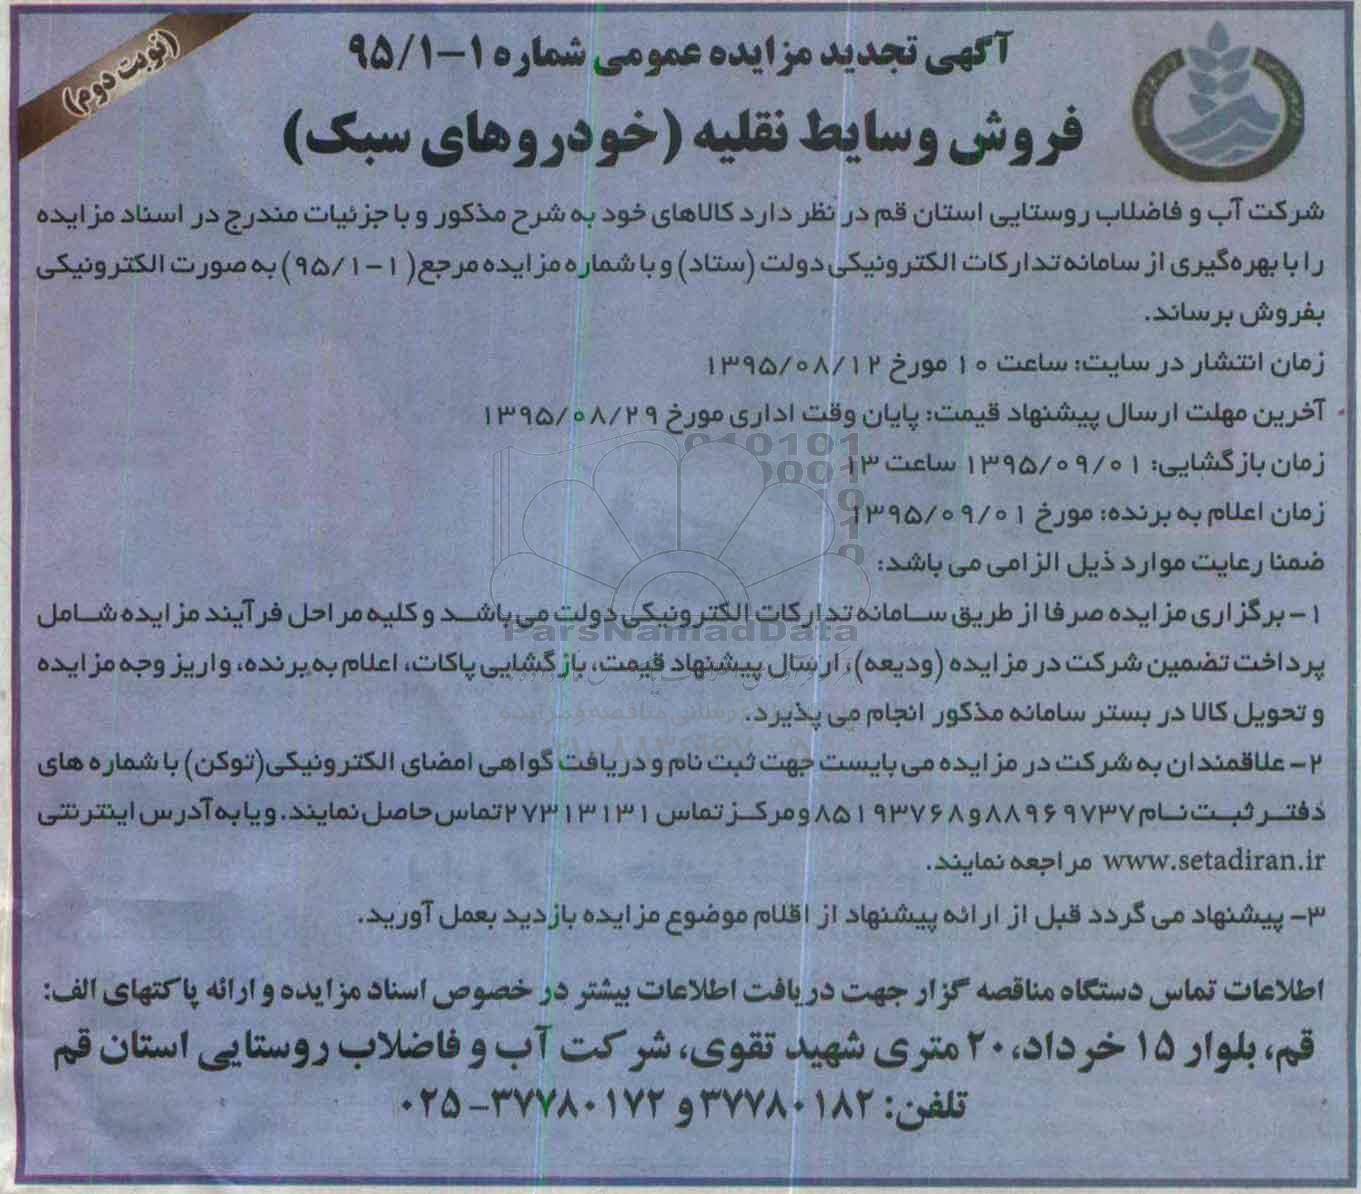 (نوبت دوم)
آگهی تجدید مزایده عمومی شماره ۱-۹۵/۱
فروش وسایط نقلیه (خودروهای سبک)
شرکت آب و فاضلاب روستایی استان قم در نظر دارد کالاهای خود به شرح مذکور و با جزئیات مندرج در اسناد مزایده
را با بهره‌گیری از سامانه تدارکات الکترونیکی دولت (ستاد) و با شماره مزایده مرجع( ۱-۹۵/۱) به صورت الکترونیکی
بفروش برساند.
زمان انتشار در سایت: ساعت ۱۰ مورخ ۱۳۹۵/۰۸/۱۲
آخرین مهلت ارسال پیشنهاد قیمت: پایان وقت اداری مورخ ۱۳۹۵/۰۸/۲۹
زمان بازگشایی: ۱۳۹۵/۰۹/۰۱ ساعت ۱۳
زمان اعلام به برنده: مورخ ۱۳۹۵/۰۹/۰۱
ضمنا رعایت موارد ذیل الزامی می باشد:
۱- برگزاری مزایده صرفا از طریق سامانه تدارکات الکترونیکی دولت می‌باشد و کلیه مراحل فرآیند مزایده شامل
پرداخت تضمین شرکت در مزایده (ودیعه)، ارسال پیشنهاد قیمت، بازگشایی پاکات، اعلام به برنده، واریز وجه مزایده
و تحویل کالا در بستر سامانه مذکور انجام می پذیرد.
۲- علاقمندان به شرکت در مزایده می بایست جهت ثبت نام و دریافت گواهی امضای الکترونیکی(توکن) با شماره های
دفتر ثبت نام ۸۸۹۶۹۷۳۷و۸۵۱۹۳۷۶۸ و مرکز تماس ۲۷۳۱۳۱۳۱تماس حاصل نمایند. و یا به آدرس اینترنتی
www.setadiran.ir مراجعه نمایند.
۳- پیشنهاد می گردد قبل از ارائه پیشنهاد از اقلام موضوع مزایده بازدید بعمل آورید.
اطلاعات تماس دستگاه مناقصه گزار جهت دریافت اطلاعات بیشتر در خصوص اسناد مزایده و ارائه پاکتهای الف:
قم، بلوار ۱۵ خرداد، ۲۰ متری شهید تقوی، شرکت آب و فاضلاب روستایی استان قم
تلفن: ۳۷۷۸۰۱۸۲ و ۳۷۷۸۰۱۷۲-۰۲۵
ParsNamadData